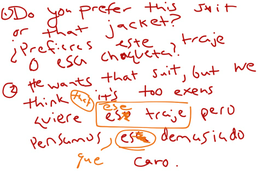 ① Do you prefer this suit
or that jacket?
¿Prefieres este traje
o esa chaqueta?
② He wants that suit, but we
think that it's too exens
quiere ese traje pero
pensamos que es demasiado
caro.